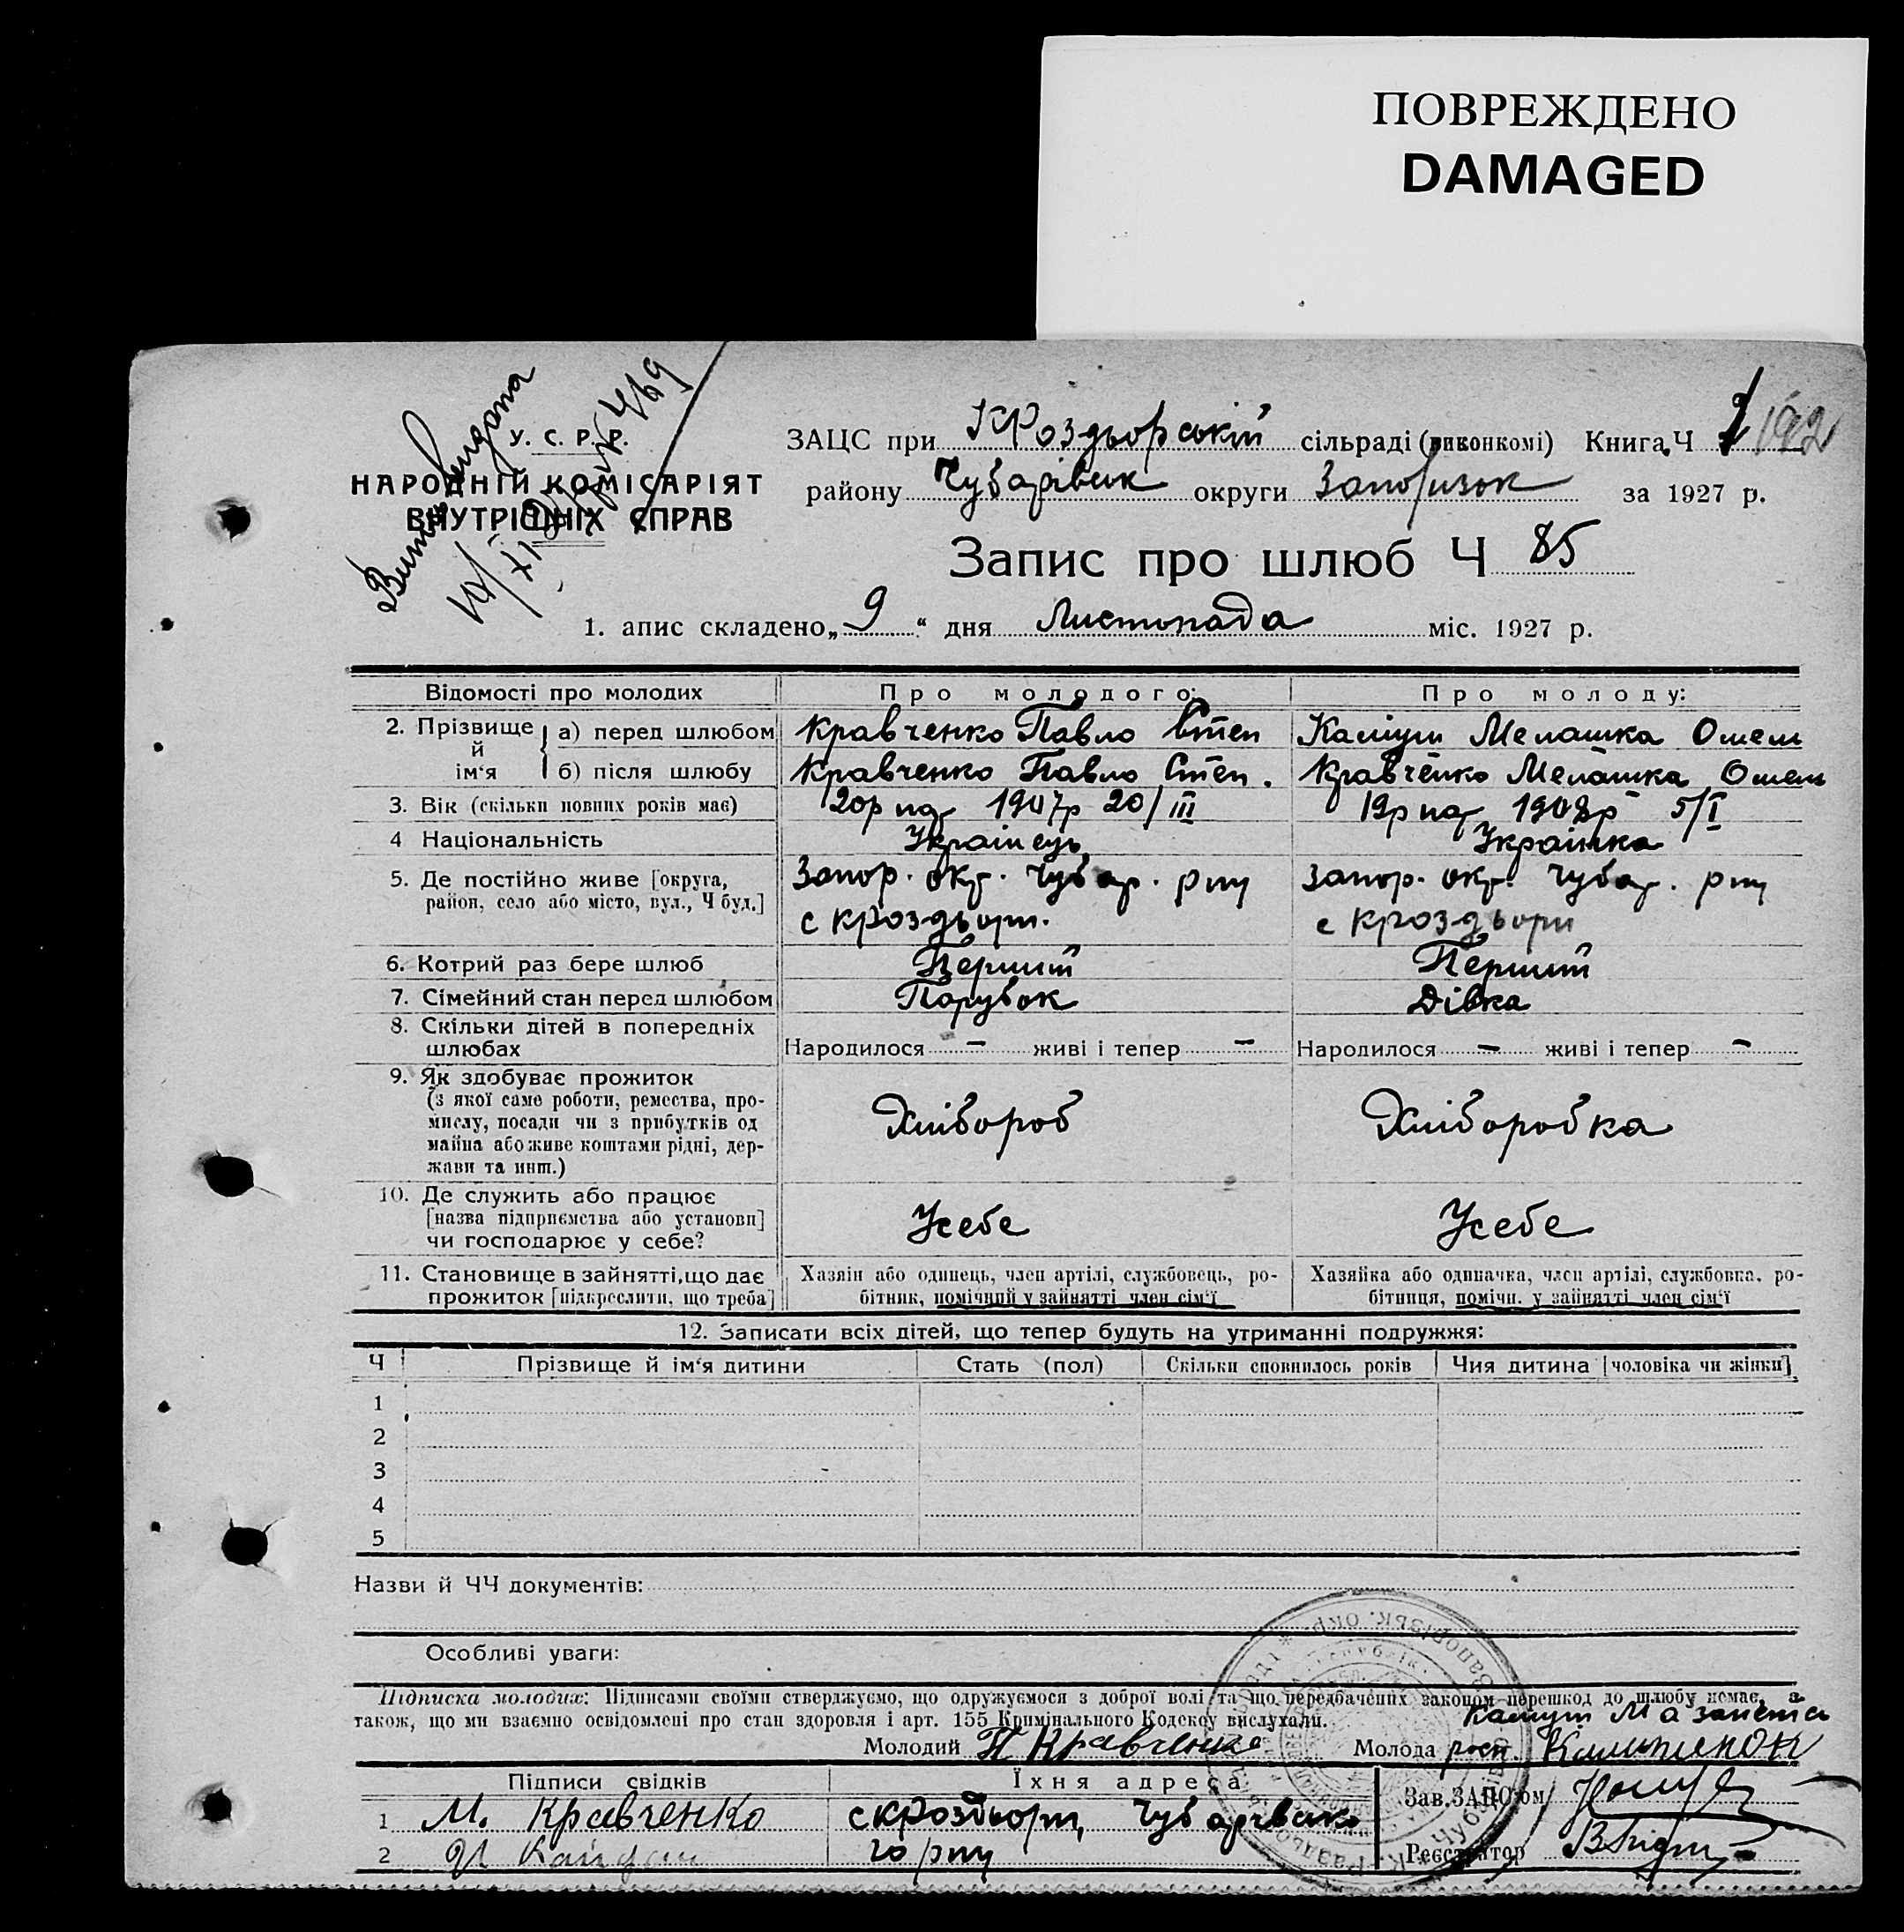 ПОВРЕЖДЕНО
DAMAGED
У. С. Р. Р.
НАРОДНІЙ КОМІСАРІЯТ
ВНУТРІШНІХ СПРАВ
ЗАЦС при КРоздьорській сільраді (виконкомі) Книга Ч 192
району Чубарівськ округи Запоризьк за 1927 р.
Запис про шлюб Ч 85
1. апис складено „9“ дня Листопада міс. 1927 р.
Відомості про молодих Про молодого: Про молоду:
2. Прізвище й ім‘я
а) перед шлюбом Кравченко Павло Степ Мелашка Омель
б) після шлюбу Кравченко Павло Степ. Кравченко Мелашка Омель
3. Вік (скільки повних років має) 20р 1907р 20/III 19р 1908р 5/I
4 Національність Українець Українка
5. Де постійно живе [округа, район, село або місто, вул., Ч буд.]
Запор. окр. Чубар. рну Запор. окр. Чубар. рну
с КРоздьори. с КРоздьори
6. Котрий раз бере шлюб Перший Перший
7. Сімейний стан перед шлюбом Парубок Дівка
8. Скільки дітей в попередніх шлюбах Народилося – живі і тепер – Народилося – живі і тепер –
9. Як здобуває прожиток
(з якої саме роботи, ремества, про-
мислу, посади чи з прибутків од
майна або живе коштами рідні, дер-
жави та инш.)
Хлібороб Хліборобка
10. Де служить або працює
[назва підприємства або установи]
чи господарює у себе?
Усебе Усебе
11. Становище в зайнятті, що дає
прожиток [підкреслити, що треба]
Хазяїн або одинець, член артілі, службовець, ро-
бітник, помічний у зайнятті член сім‘ї
Хазяйка або одиначка, член артілі, службовка, ро-
бітниця, помічн. у зайнятті член сім‘ї
12. Записати всіх дітей, що тепер будуть на утриманні подружжя:
Ч Прізвище й ім‘я дитини Стать (пол) Скільки сповнилось років Чия дитина [чоловіка чи жінки]
1
2
3
4
5
Назви й ЧЧ документів:
Особливі уваги:
Підписка молодих: Підписами своїми стверджуємо, що одружуємося з доброї волі та що передбачених законом перешкод до шлюбу немає, а
також, що ми взаємно освідомлені про стан здоровля і арт. 155 Кримінального Кодексу вислухали.
Молодий П Кравченко Молода
Підписи свідків Їхня адреса Зав. ЗАЦС'ом
1 М. Кравченко с КРоздьори, Чубарівсько
2 го рну Реєстратор